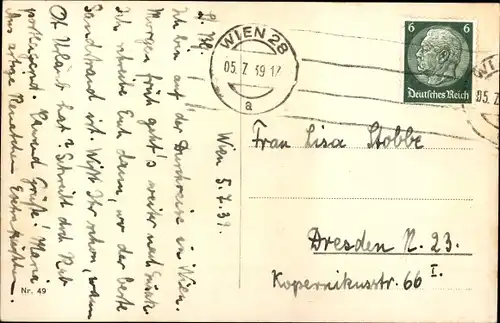 L. M.!
Wien 5.7.39.
Ich bin auf der Durchreise in Wien.
Morgen früh geht's weiter nach
Ich schreibe Euch dann, wo der beste
Sandstrand ist. Wißt Ihr schon, wann
Ot Urlaub hat? Schreibt doch
postlagernd. Tausend Grüße! Maria
Nr. 49
WIEN 28
05. 7. 39 17
a
6 6
Deutsches Reich
WI
05. 7
Frau Lisa Stobbe
Dresden N. 23.
Kopernikusstr. 66 I.